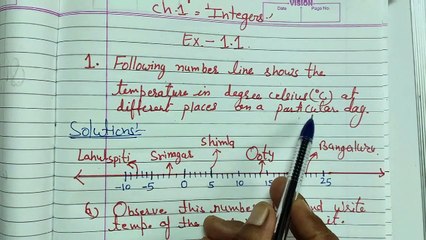 VISION
Page No.
Ch.1 = Integers.
Ex. - 1.1
1. Following number line shows the
temperature in degree celsius (°c) at
different places on a particular day.
Solutions:-
Lahulspiti Srinagar Shimla Ooty Bangaluru
-10 -5 0 5 10 25
Q) Observe this number and write
temp. of the it.